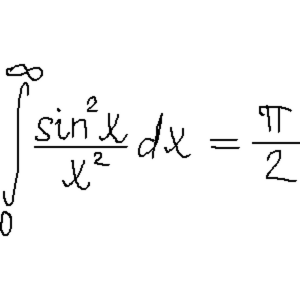 ∫₀^∞ sin²x/x² dx = π/2